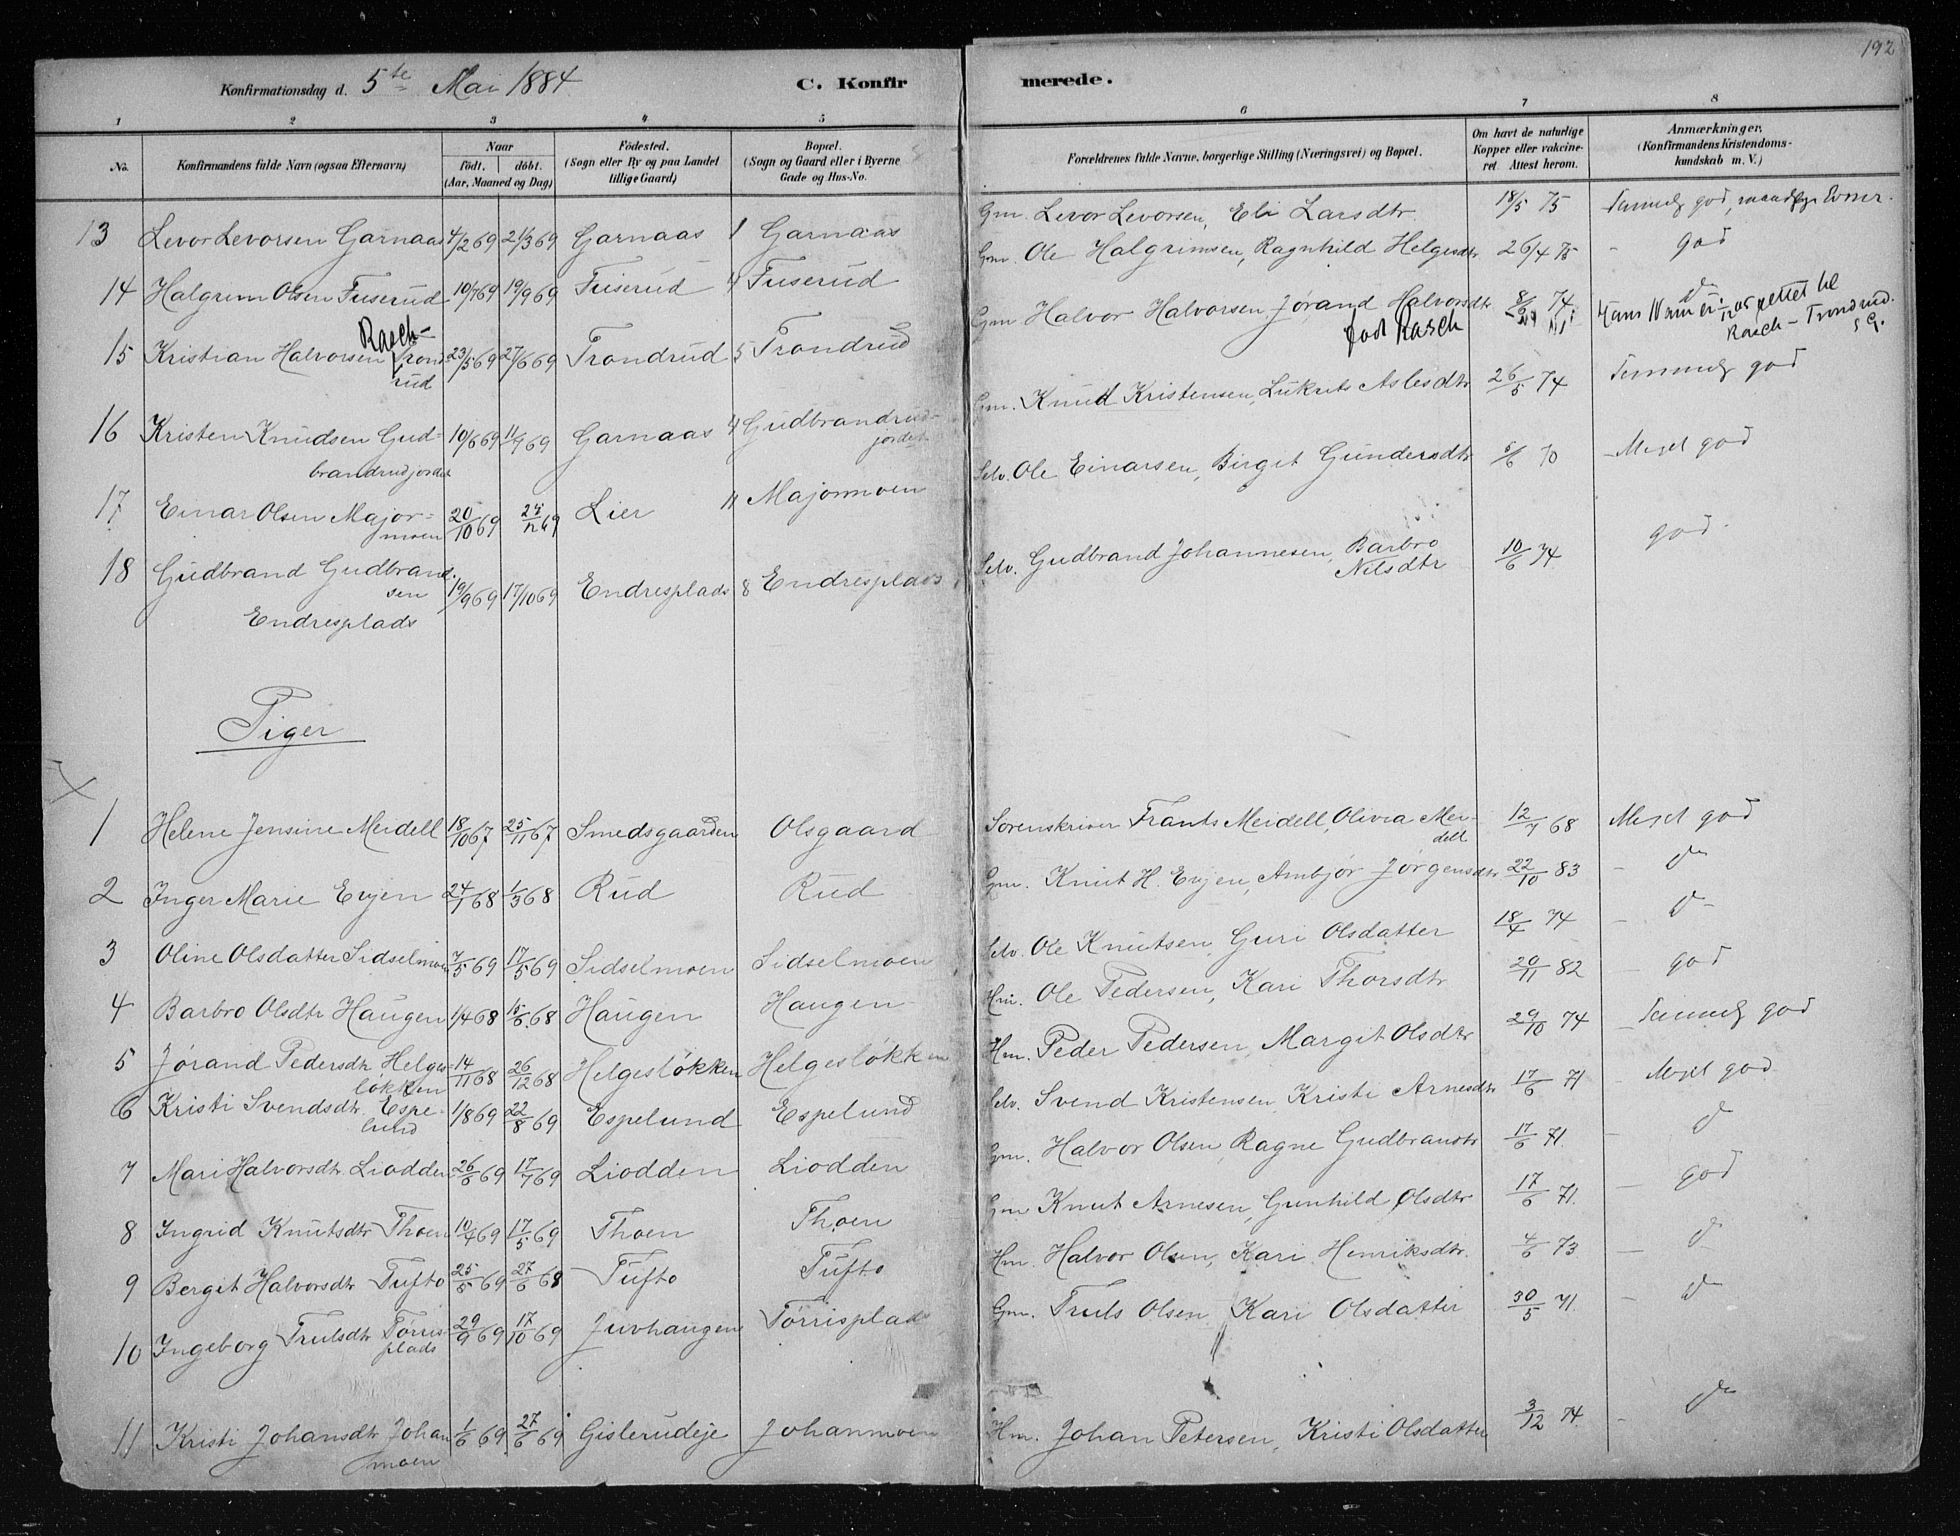 192
Konfirmationsdag d. 5te Mai 1884. C. Konfir merede.
1 2 3 4 5 6 7 8
No. Konfirmandens fulde Navn (ogsaa Efternavn) Naar født. døbt. (Aar, Maaned og Dag) Fødested. (Sogn eller By og paa Landet tillige Gaard) Bopæl. (Sogn og Gaard eller i Byerne Gade og Hus-No. Forældrenes fulde Navne, borgerlige Stilling (Næringsvei) og Bopæl. Om havt de naturlige Kopper eller vakcineret Attest herom. Anmærkninger. (Konfirmandens Kristendomskundskab m. V.)
13 Levor Levorsen Garnaas 4/2 69 21/3 69 Garnaas 1 Garnaas Gm. Levor Levorsen, Eli Larsdtr. 18/5 75 Temmelg god,
14 Halgrim Olsen Fuserud 10/7 69 19/9 69 Fuserud 4 Fuserud Gm. Ole Halgrimsen, Ragnhild Helgesdtr 26/4 75 - god
15 Kristian Halvorsen Rasch- Trondrud 23/5 69 27/6 69 Trondrud 5 Trondrud Gm Halvor Halvorsen Jørand Halvorsdtr født Rasch 8/6 74 Hans Navn er rettet til Rasch - Trondrud.
16 Kristen Knudsen Gudbrandrudjordet 10/6 69 11/9 69 Garnaas 4 Gudbrandrud-jordet Gm. Knud Kristensen, Lukrets Aslesdtr 26/5 74 Temmelg god
17 Einar Olsen Majormoen 20/10 69 69 Lier 11 Majormoen Selv. Ole Einarsen, Birgit Gundersdtr 5/6 70 - Meget god
18 Gudbrand Gudbrandsen Endresplads 19/9 69 17/10 69 Endresplads 8 Endresplads Selv. Gudbrand Johannesen, Barbro Nilsdtr 10/6 74 god
Piger
1 Helene Jensine Meidell 18/10 67 25/11 67 Smedsgaarden Olsgaard Sorenskriver Frants Meidell, Olivia Meidell 12/7 68 Meget god
2 Inger Marie Evjen 24/1 68 1/3 68 Rud Rud Gm. Knut H. Evjen, Ambjør Jørgensdtr 22/10 83 - do
3 Oline Olsdatter Sidselmoen 7/5 69 17/5 69 Sidselmoen Sidselmoen Selv. Ole Knutsen, Guri Olsdatter 18/4 74 - do
4 Barbro Olsdtr Haugen 1/4 68 68 Haugen Haugen Hm. Ole Pedersen, Kari Thorsdtr 20/11 82 - god
5 Jørand Pedersdtr Helgesløkken 14/11 68 26/12 68 Helgesløkken Helgesløkken Hm. Peder Pedersen, Margit Olsdtr 29/10 74 - Temmelg god
6 Kristi Svendsdtr. Espelund 1/8 69 22/8 69 Espelund Espelund Selv. Svend Kristensen Kristi Arnesdtr 17/6 71 - Meget god
7 Mari Halvorsdtr Liodden 26/6 69 17/7 69 Liodden Liodden Gm. Halvor Olsen, Ragne Gudbrandtr 17/6 71. - do
8 Ingrid Knutsdtr Thoen 10/4 69 17/5 69 Thoen Thoen Gm Knut Arnesen, Gunhild Olsdtr 17/6 71. - god
9 Bergit Halvorsdtr Tufto 25/5 69 27/6 68 Tufto Tufto Hm. Halvor Olsen, Kari Henriksdtr. 4/6 73 - do
10 Ingeborg Trulsdtr Tørrisplads 29/9 69 17/10 69 Juvhaugen Tørrisplads Gm. Truls Olsen Kari Olsdatter 30/5 71. - do
11 Kristi Johansdtr Johanmoen 1/6 69 27/6 69 Gislerudeje Johanmoen Hm. Johan Petersen, Kristi Olsdatter 3/12 74. - do